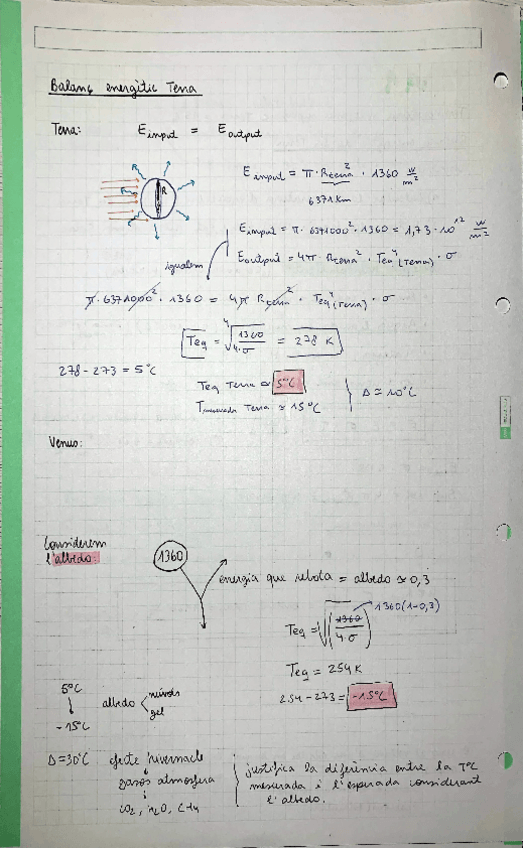 Balanç energètic Terra
Terra: E input = E output
R
E input = π · R terra² · 1360 W/m²
6371 km
E input = π · 6371000² · 1360 = 1,73 · 10¹² W/m²
E output = 4π · R terra² · Teq⁴ (Terra) · σ
igualem
π · 6371000² · 1360 = 4π R terra² · Teq⁴ (Terra) · σ
Teq = ⁴√(1360/4·σ) = 278 K
278 - 273 = 5°C
Teq Terra ≈ 5°C
T mesurada Terra ≈ 15°C
Δ ≈ 10°C
Venus:
Considerem
l'albedo:
1360
energia que rebota = albedo ≈ 0,3
1360(1-0,3)
Teq = √(1360/4·σ)
Teq = 254 K
254 - 273 = -15°C
5°C
↓
-15°C
albedo < núvols
gel
Δ = 30°C efecte hivernacle
gasos atmosfera
CO₂, H₂O, CH₄
justifica la diferència entre la T°C
mesurada i l'esperada considerant
l'albedo.